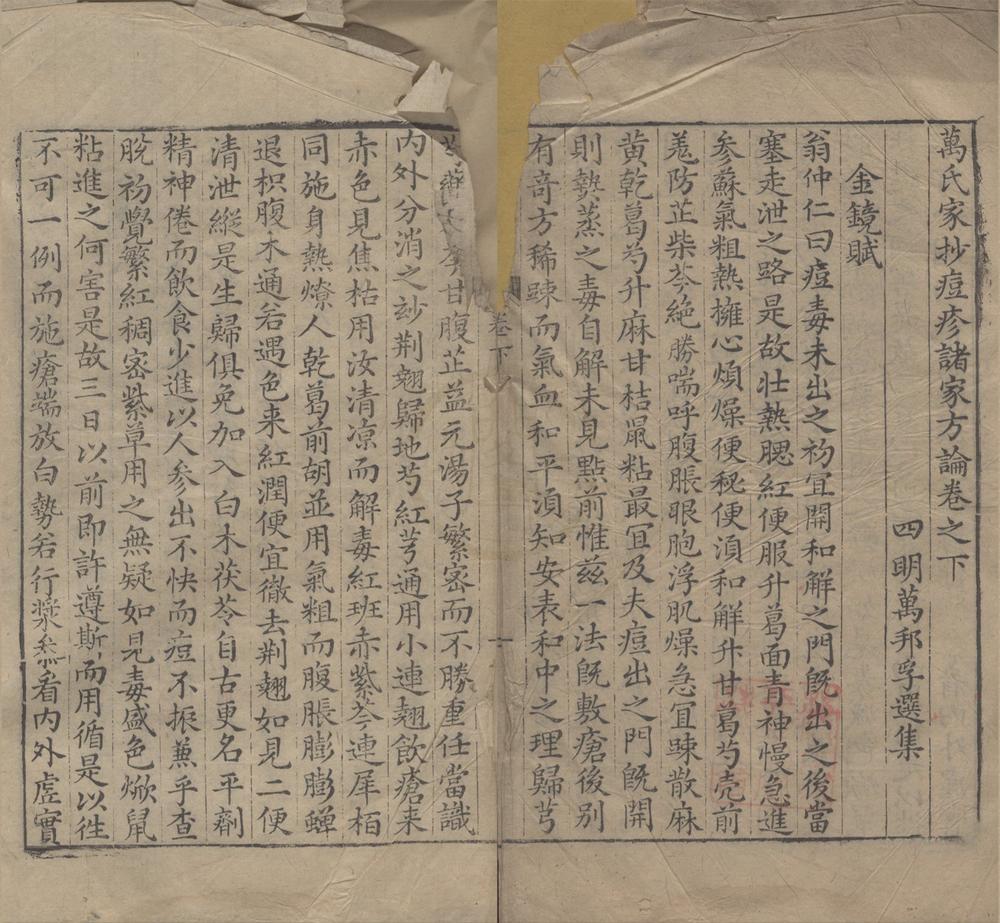 萬氏家抄痘疹諸家方論卷之下
四明萬邦孚選集
金鏡賦
翁仲仁曰痘毒未出之初宜開和解之門旣出之後當
塞走泄之路是故壯熱腮紅便服升葛面青神慢急進
參蘇氣粗熱擁心煩燥便秘便湏和解升甘葛芍壳前
羗防芷柴芩絶勝喘呼腹脹眼胞浮肌燥急宜踈散麻
黄乾葛芍升麻甘桔鼠粘最宜及夫痘出之門旣開
則熱蒸之毒自解未見點前惟兹一法旣敷瘡後别
有竒方稀踈而氣血和平湏知安表和中之理歸芎
甘腹芷益元湯子繁密而不勝重任當識
内外分消之玅荆翹歸地芍紅芎通用小連翹飲瘡来
赤色見焦枯用汝清凉而解毒紅班赤紫芩連犀栢
同施身熱燎人乾葛前胡並用氣粗而腹脹膨膨蟬
退枳腹木通若遇色来紅潤便宜徹去荆翹如見二便
清泄縱是生歸俱免加入白木茯苓自古更名平劑
精神倦而飲食少進以人參出不快而痘不振兼乎查
脫初覺繁紅稠密紫草用之無疑如見毒盛色焮鼠
粘進之何害是故三日以前即許遵斯而用循是以徃
不可一例而施瘡端放白勢若行漿叅看内外虛實
卷下
一